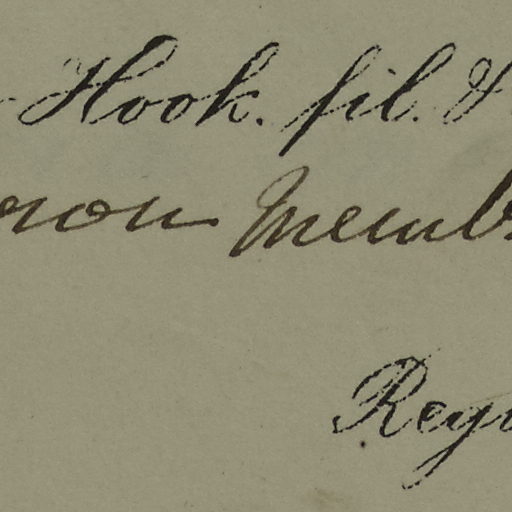 Hook. fil. &
non Memb
Reg